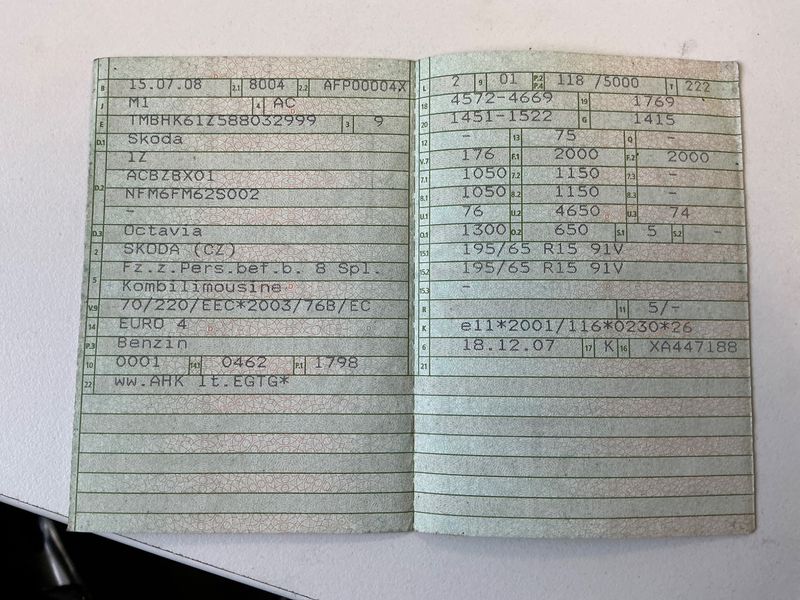 B 15.07.08 2.1 8004 2.2 AFP00004X
J M1 4 AC
E TMBHK61Z588032999 3 9
D.1 Skoda
D.2 1Z
ACBZBX01
NFM6FM62S002
-
D.3 Octavia
2 SKODA (CZ)
5 Fz.z.Pers.bef.b. 8 Spl.
Kombilimousine
V.9 70/220/EEC*2003/76B/EC
14 EURO 4
P.3 Benzin
10 0001 14.1 0462 P.1 1798
22 ww.AHK lt.EGTG*
L 2 9 01 P.2 P.4 118 /5000 T 222
18 4572-4669 19 1769
20 1451-1522 G 1415
12 - 13 75 Q -
V.7 176 F.1 2000 F.2 2000
7.1 1050 7.2 1150 7.3 -
8.1 1050 8.2 1150 8.3 -
U.1 76 U.2 4650 U.3 74
O.1 1300 O.2 650 S.1 5 S.2 -
15.1 195/65 R15 91V
15.2 195/65 R15 91V
15.3 -
R 11 5/-
K e11*2001/116*0230*26
6 18.12.07 17 K 16 XA447188
21